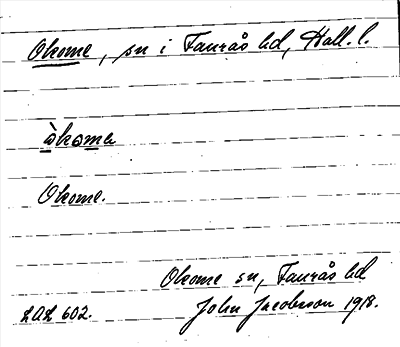 Okome, sn i Faurås hd, Hall. l.
òkoma
Okome.
Okome sn, Faurås hd
LAL 602. John Jacobsson 1918.